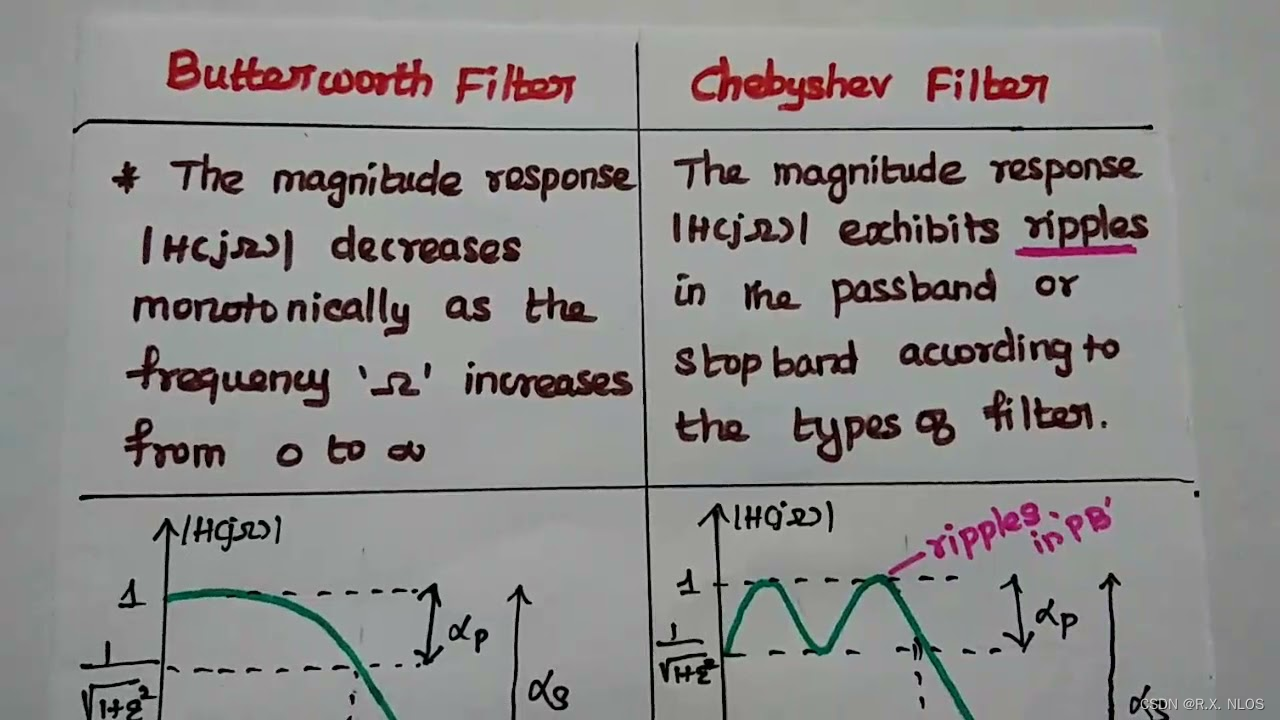 Butterworth Filter
* The magnitude response
|H(jΩ)| decreases
monotonically as the
frequency 'Ω' increases
from 0 to ∞
Chebyshev Filter
The magnitude response
|H(jΩ)| exhibits ripples
in the passband or
stop band according to
the types of filter.
|H(jΩ)|
1
1/√1+ε²
αp
αs
|H(jΩ)|
ripples in 'PB'
1
1/√1+ε²
αp
CSDN @R.X. NLOS